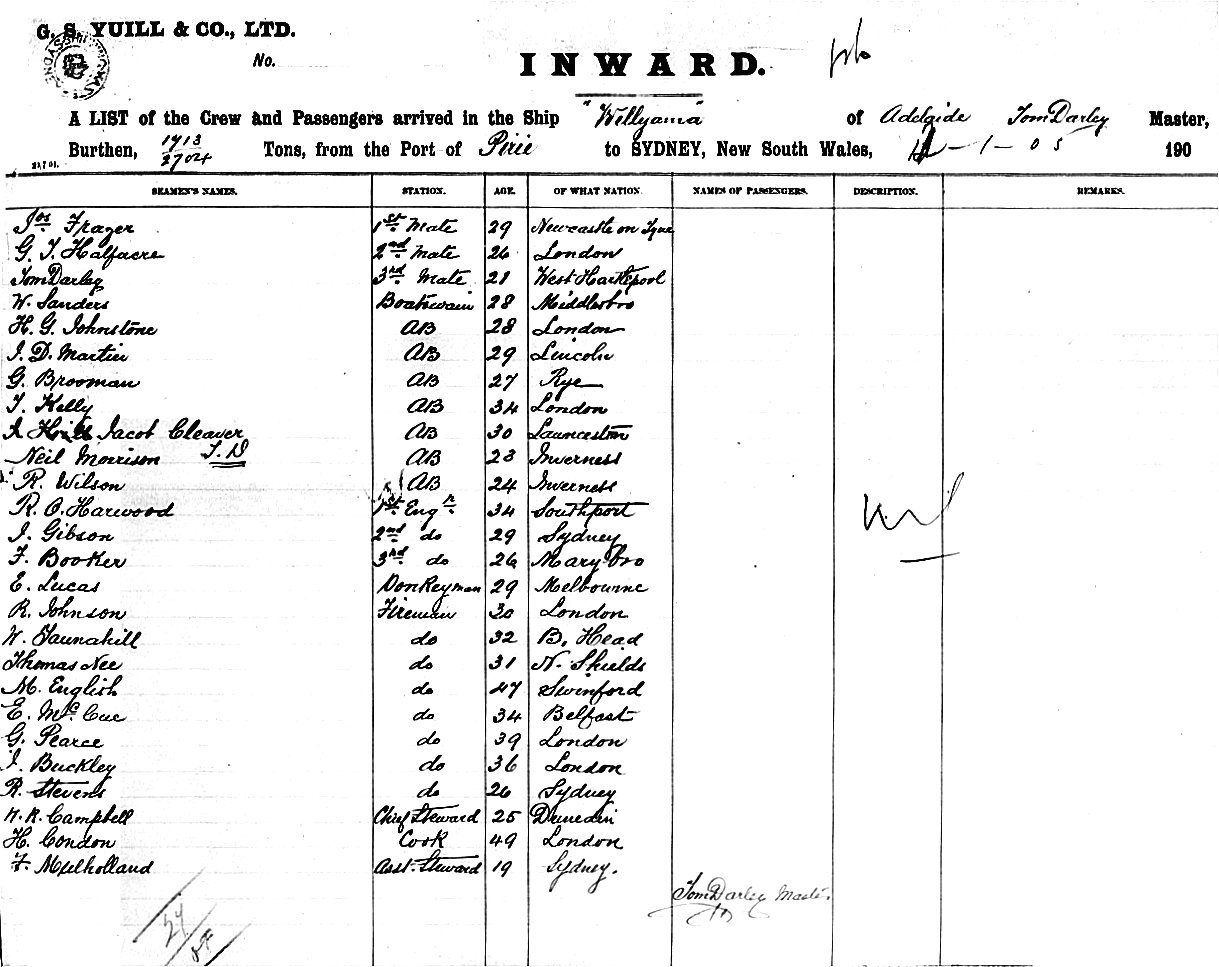 G. S. YUILL & CO., LTD.
No.
INWARD.
A LIST of the Crew and Passengers arrived in the Ship "Willyama" of Adelaide Tom Darley Master,
Burthen, 1713/2704 Tons, from the Port of Pirie to SYDNEY, New South Wales, -1-05 190
SEAMEN'S NAMES. STATION. AGE. OF WHAT NATION. NAMES OF PASSENGERS. DESCRIPTION. REMARKS.
Jos. Frazer 1st Mate 29 Newcastle on Tyne
G. T. Halfacre 2nd Mate 26 London
Tom Darley 3rd Mate 21 West Hartlepool
W. Sanders Boatswain 28 Middlesbro
H. G. Johnstone AB 28 London
J. D. Martin AB 29 Lincoln
G. Brooman AB 27 Rye
T. Kelly AB 34 London
Jacob Cleaver AB 30 Launceston
Neil Morrison T.D AB 23 Inverness
R. Wilson AB 24 Inverness
R. O. Harwood 1st Engr. 34 Southport
J. Gibson 2nd do 29 Sydney
F. Booker 3rd do 26 Marybro
E. Lucas Donkeyman 29 Melbourne
R. Johnson Fireman 30 London
W. Taunahill do 32 B. Head
Thomas Nee do 31 N. Shields
M. English do 47 Swinford
E. Mc. Cue do 34 Belfast
G. Pearce do 39 London
J. Buckley do 36 London
R. Stevens do 26 Sydney
H. R. Campbell Chief Steward 25 Dunedin
H. Condon Cook 49 London
F. Mulholland Asst. Steward 19 Sydney.
Tom Darley Master.